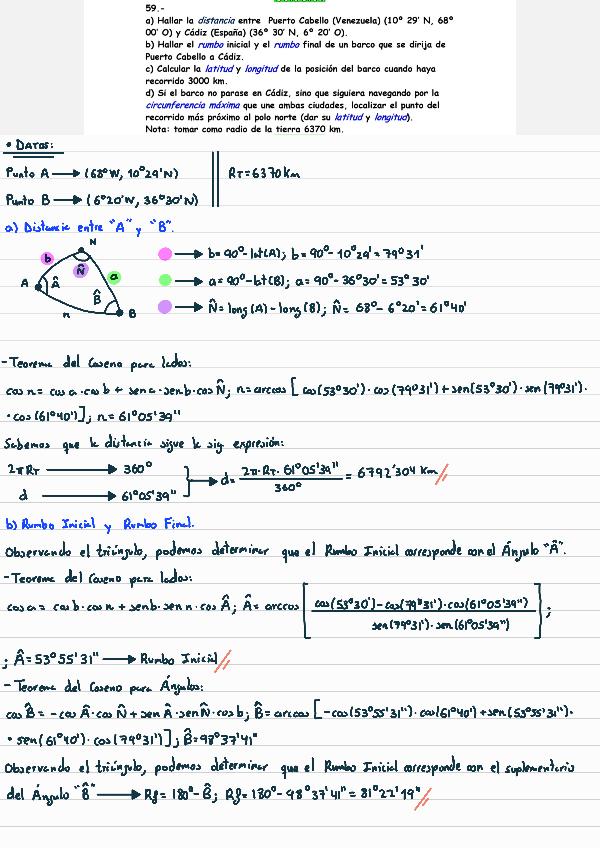 59.-
a) Hallar la distancia entre Puerto Cabello (Venezuela) (10º 29' N, 68º
00' O) y Cádiz (España) (36º 30' N, 6º 20' O).
b) Hallar el rumbo inicial y el rumbo final de un barco que se dirija de
Puerto Cabello a Cádiz.
c) Calcular la latitud y longitud de la posición del barco cuando haya
recorrido 3000 km.
d) Si el barco no parase en Cádiz, sino que siguiera navegando por la
circunferencia máxima que une ambas ciudades, localizar el punto del
recorrido más próximo al polo norte (dar su latitud y longitud).
Nota: tomar como radio de la tierra 6370 km.
• DATOS:
Punto A → (68ºW, 10º29'N) RT=6370 Km
Punto B → (6º20'W, 36º30'N)
a) Distancia entre "A" y "B".
N
b N̂ a
A Â B̂ B
n
→ b=90º-lat(A); b=90º-10º29'=79º31'
→ a=90º-lat(B); a=90º-36º30'=53º30'
→ N̂=long(A)-long(B); N̂=68º-6º20'=61º40'
-Teorema del Coseno para lados:
cos n=cos a·cos b+sen a·sen b·cos N̂; n=arccos [cos(53º30')·cos(79º31')+sen(53º30')·sen(79º31')·
·cos(61º40')]; n=61º05'39"
Sabemos que la distancia sigue la sig expresión:
2πRT → 360º
d → 61º05'39"
→ d= 2π·RT·61º05'39" / 360º = 6792'304 Km
b) Rumbo Inicial y Rumbo Final.
Observando el triángulo, podemos determinar que el Rumbo Inicial corresponde con el Ángulo "Â".
-Teorema del Coseno para lados:
cos a=cos b·cos n+sen b·sen n·cos Â; Â=arccos [cos(53º30')-cos(79º31')·cos(61º05'39") / sen(79º31')·sen(61º05'39")];
; Â=53º55'31" → Rumbo Inicial
-Teorema del Coseno para Ángulos:
cos B̂=-cos Â·cos N̂+sen Â·sen N̂·cos b; B̂=arccos [-cos(53º55'31")·cos(61º40')+sen(53º55'31")·
·sen(61º40')·cos(79º31')]; B̂=98º37'41"
Observando el triángulo, podemos determinar que el Rumbo Inicial corresponde con el suplementario
del Ángulo "B̂" → Rf=180º-B̂; Rf=180º-98º37'41"=81º22'19"